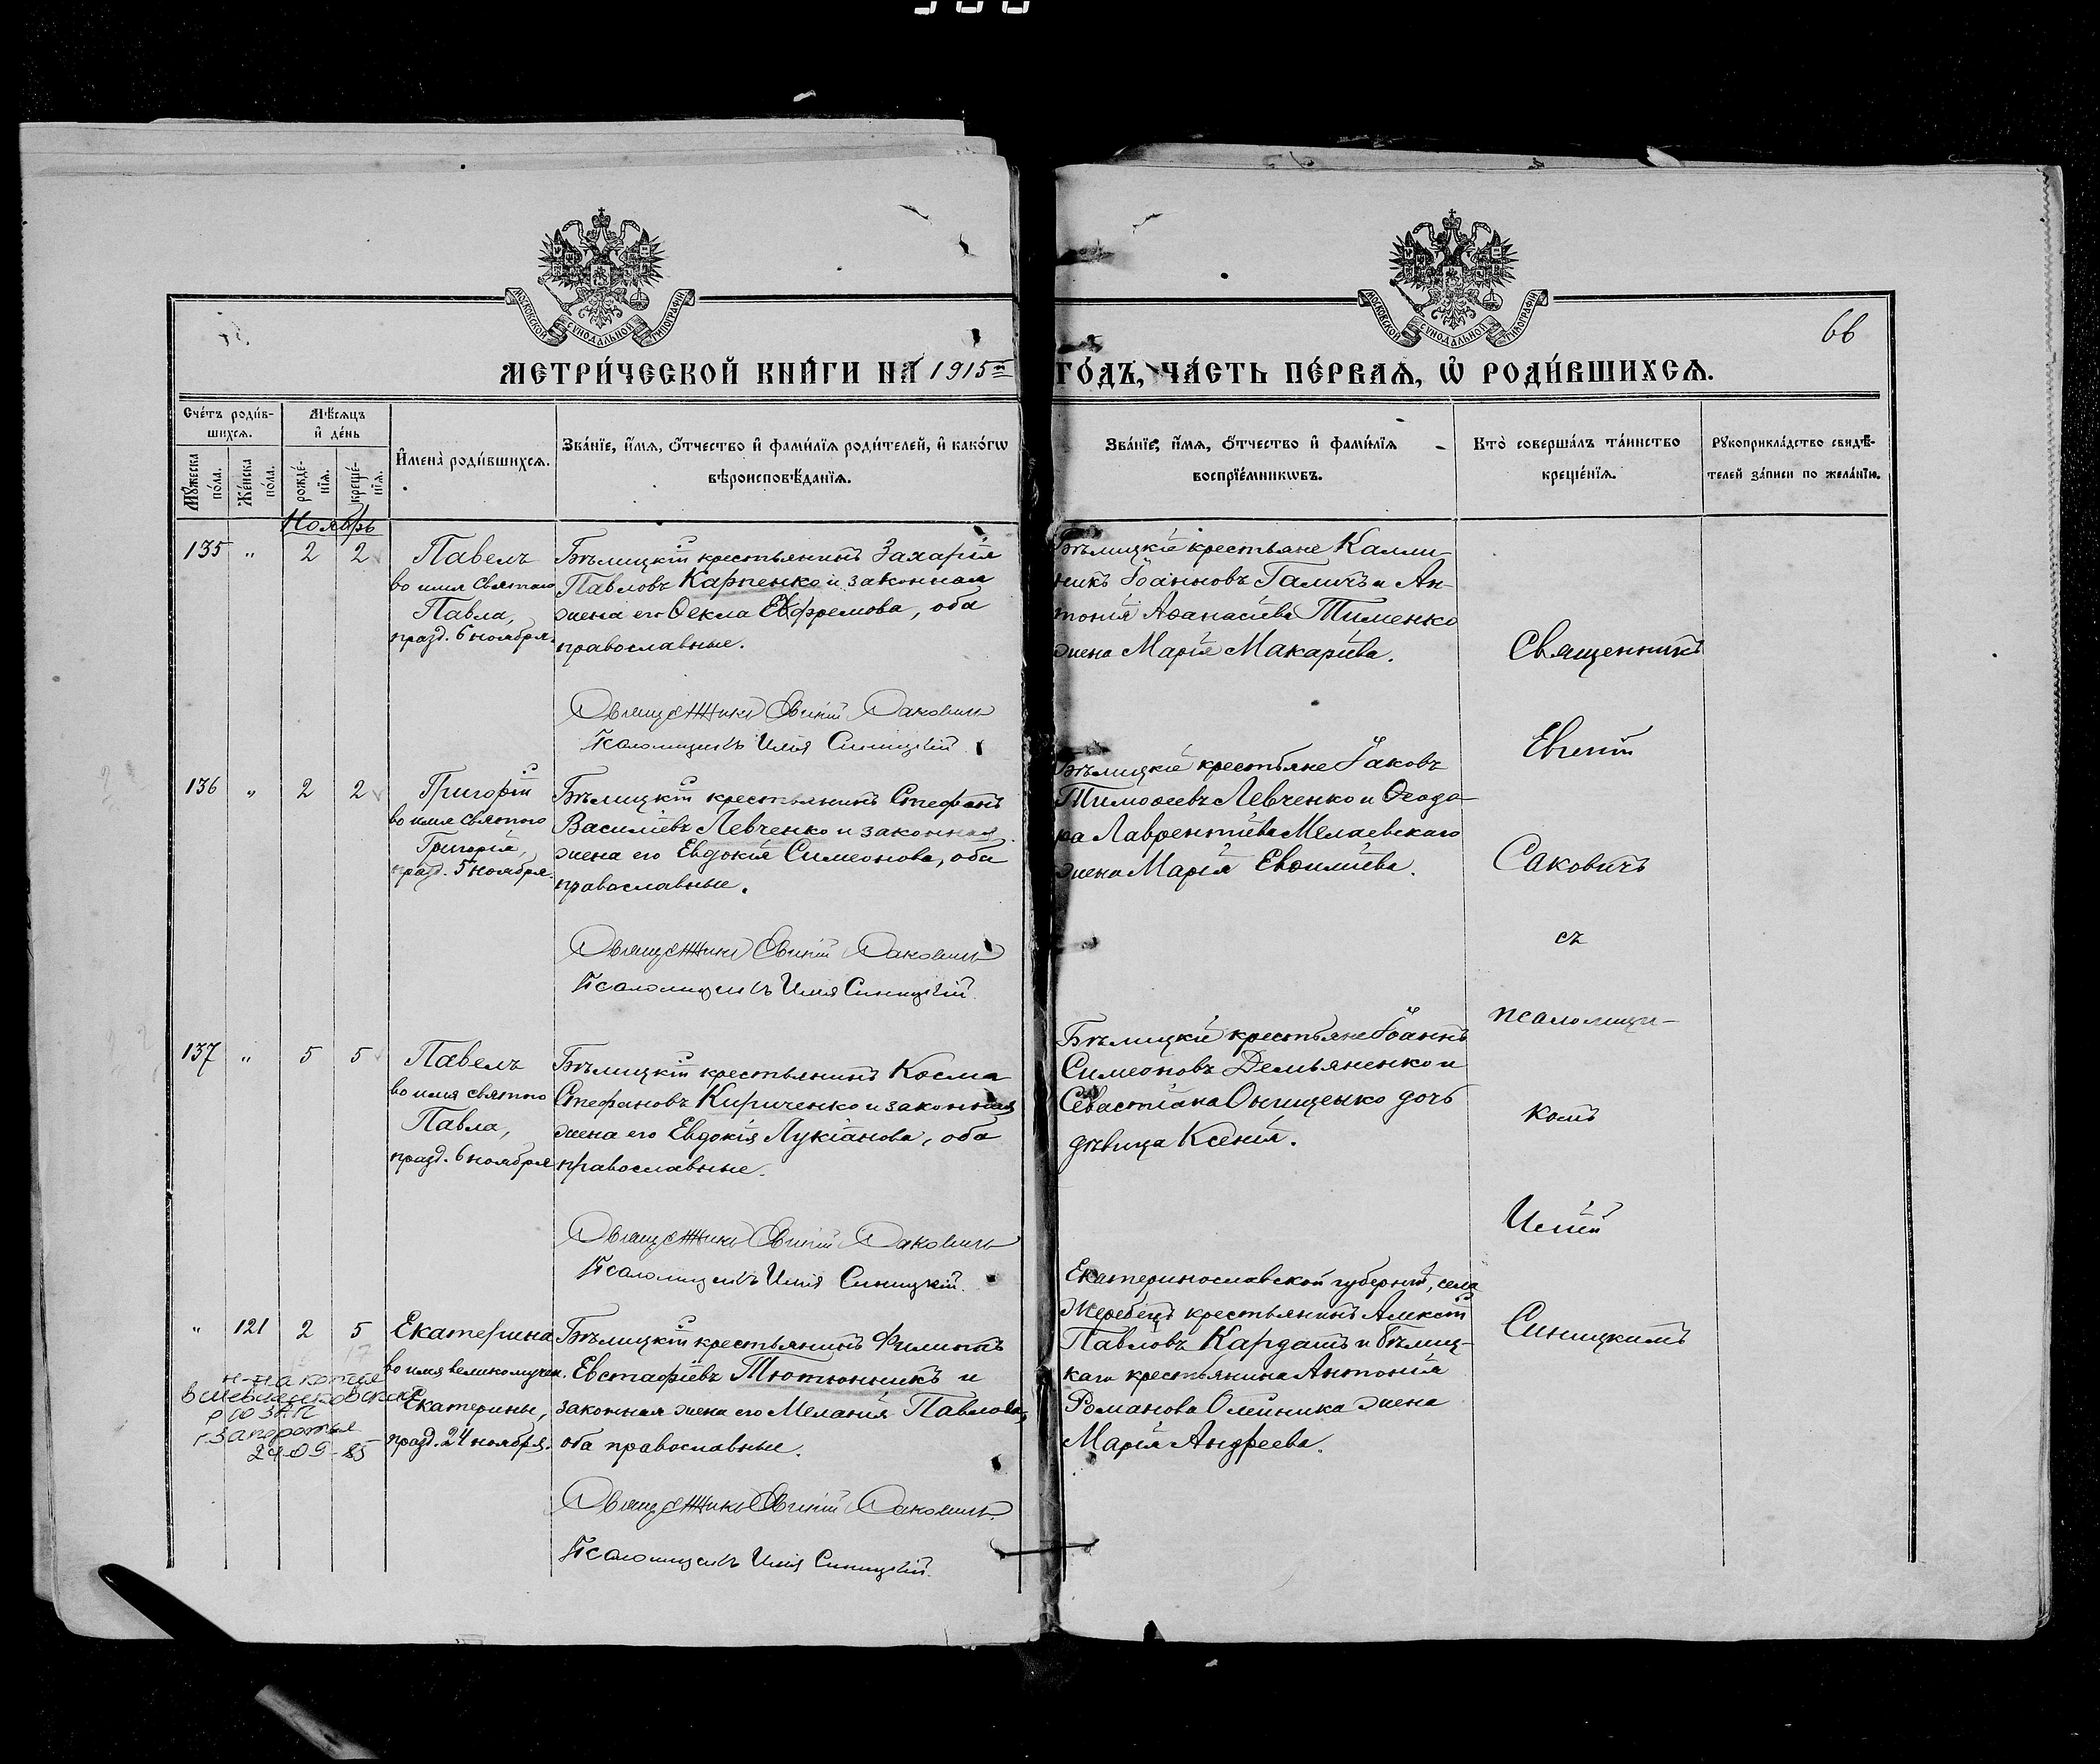 МОСКОВСКОЙ СУНОДАЛЬНОЙ ТИПОГРАФІИ
МОСКОВСКОЙ СУНОДАЛЬНОЙ ТИПОГРАФІИ
66
МЕТРИ́ЧЕСКОЙ КНИ́ГИ НА 1915й ГО́ДЪ, ЧА́СТЬ ПЕ́РВАѦ, Ѡ РОДИ́ВШИХСѦ.
Сче́тъ роди́в-
шихсѧ.
Мꙋ́жеска по́ла.
Же́нска по́ла.
Мѣ́сѧцъ
и҆ де́нь
рожде́-
нїѧ.
креще́-
нїѧ.
И҆мена̀ роди́вшихсѧ.
Зва́нїе, и҆́мѧ, ѻ҆́тчество и҆ фами́лїѧ роди́телей, и҆ како́гѡ
вѣроисповѣ́данїѧ.
Зва́нїе, и҆́мѧ, ѻ҆́тчество и҆ фами́лїѧ
воспрїе́мникѡвъ.
Кто̀ соверша́лъ та́инство
креще́нїѧ.
Рꙋкоприкла́дство свидѣ́-
телей за́писи по жела́нїю.
Ноябрь
135 " 2 2
Павелъ
во имя святого
Павла,
празд. 6 ноября.
Бѣлицкій крестьянинъ Захарія
Павловъ Карпенко и законная
жена его Ѳекла Евфремова, оба
православные.
Священникъ Евгеній Саковичъ
Псаломщикъ Илія Синицкій.
Бѣлицкіе крестьяне Калли-
никъ Іоанновъ Галичъ и Ан-
тонія Аѳанасіева Тименко
жена Марія Макаріева.
136 " 2 2
Григорій
во имя святого
Григорія,
празд. 5 ноября.
Бѣлицкій крестьянинъ Стефанъ
Василіевъ Левченко и законная
жена его Евдокія Симеонова, оба
православные.
Священникъ Евгеній Саковичъ
Псаломщикъ Илія Синицкій.
Бѣлицкіе крестьяне Іаковъ
Тимоѳеевъ Левченко и Ѳеодо-
ра Лаврентіева Мелаевскаго
жена Марія Евѳиміева.
137 " 5 5
Павелъ
во имя святого
Павла,
празд. 6 ноября
Бѣлицкій крестьянинъ Косма
Стефановъ Кириченко и законная
жена его Евдокія Лукіанова, оба
православные.
Священникъ Евгеній Саковичъ
Псаломщикъ Илія Синицкій.
Бѣлицкіе крестьяне Іоаннъ
Симеоновъ Демьяненко и
Севастіана Онищенко дочь
дѣвица Ксенія.
" 121 2 5
Екатерина
во имя великомучен.
Екатерины,
празд. 24 ноября.
Бѣлицкій крестьянинъ Филиппъ
Евстафіевъ Тютюнникъ и
законная жена его Меланія Павлова,
оба православные.
Священникъ Евгеній Саковичъ
Псаломщикъ Илія Синицкій.
Екатеринославской губерніи, села
Жеребецъ крестьянинъ Алексій
Павловъ Кардашъ и Бѣлиц-
каго крестьянина Антонія
Романова Олейника жена
Марія Андреева.
Священникъ
Евгеній
Саковичъ
съ
псаломщи-
комъ
Иліей
Синицкимъ
г. Запорожья
24-09-85